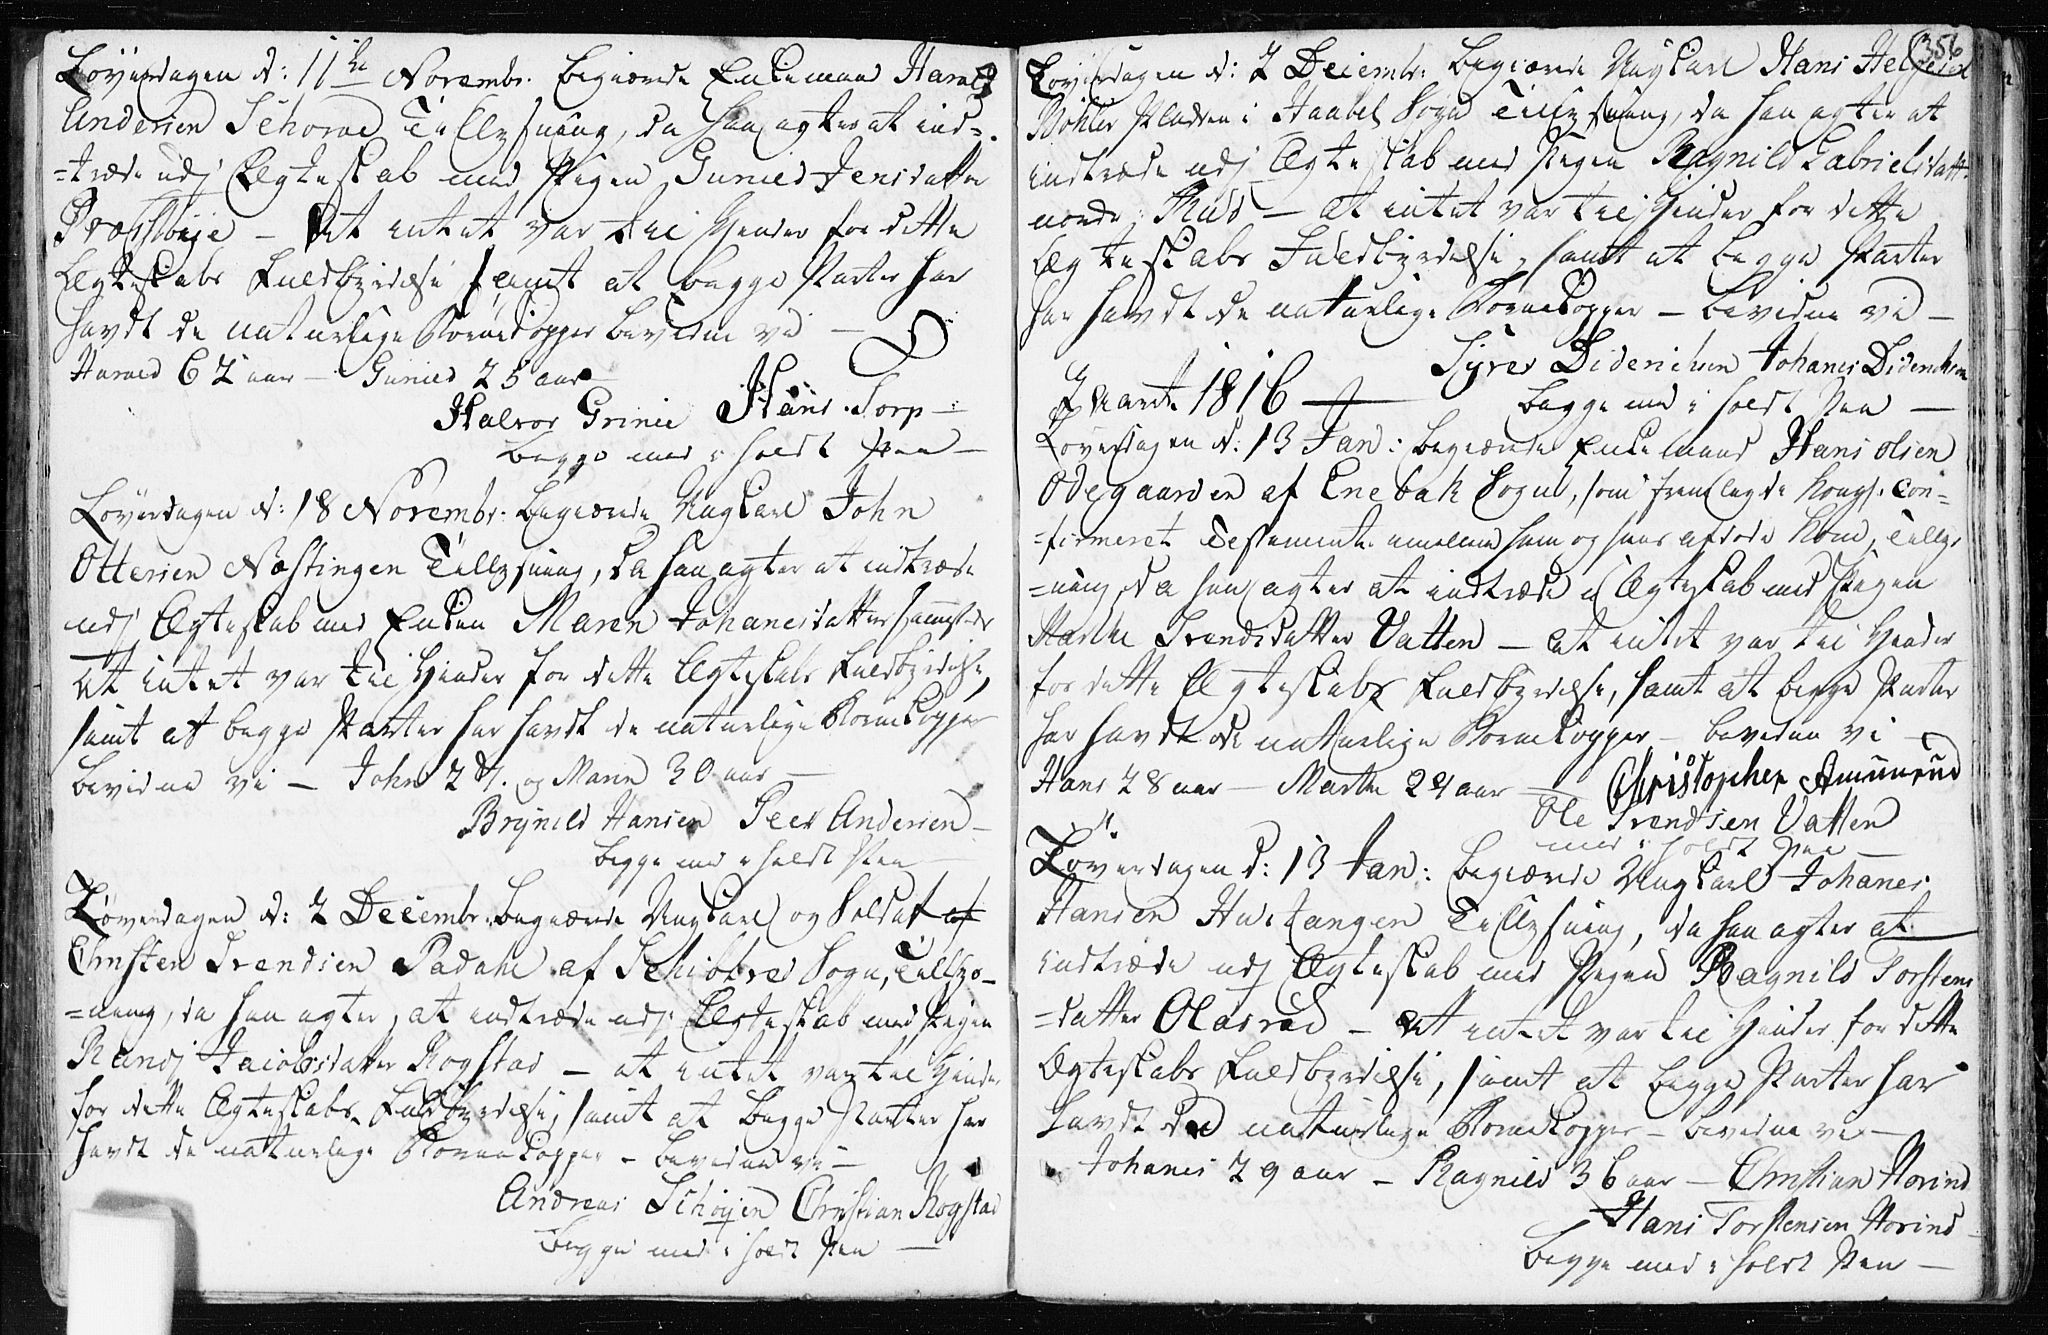 Løverdagen d: 11te Novembr. begiærede Enkemand Harald
Andersen Schorne Tillysning, da han agter at ind-
-træde udj Ægteskab med Pigen Gunild Jensdatter
Præstbøje – At intet var til Hinder for dette
Ægteskabs Fuldbyrdelse samt at begge Parter har
havdt de naturlige Børnekopper bevidne vi –
Harald 62 aar – Gunild 25 aar –
Halvor Grinie Hans Torp –
begge med i holdt Pen –
Løverdagen d: 18 Novembr. begiærede Ungkarl John
Ottersen Næstingen Tillysning, da han agter at indtræde
udj Ægteskab med Enken Maren Johanesdatter sammesteds
At intet var til Hinder for dette Ægteskabs Fuldbyrdelse,
samt at begge Parter har havdt de naturlige Børnekopper
bevidne vi – John 27. og Maren 30 aar –
Brynild Hansen Peer Andersen –
begge med i holdt Pen
Løverdagen d: 2 Decembr. begiærede Ungkarl og Soldat af
Christen Trendsen Padahl af Schibtved Sogn, Tillys-
-ning, da han agter, at indtræde udj Ægteskab med Pigen
Randj Jacobsdatter Rogstad – at intet var til Hinder
for dette Ægteskabs Fuldbyrdelse, samt at begge Parter har
havdt de naturlige Børnekopper – bevidne vi –
Andreas Schøyen Christian Rogstad
begge med i holdt Pen –
356
Løverdagen d: 2 Decembr. begiærede Ungkarl Hans Helgesen
Bøhler Pladsen i Haabøl Sogn Tillysning, da han agter at
indtræde udj Ægteskab med Pigen Ragnild Gabrielsdatt.
nordre Rud – at intet var til Hinder for dette
Ægteskabs Fuldbyrdelse, samt at begge Parter
har havdt de naturlige Børnekopper – bevidne vi –
Syver Diderichsen Johanes Diderichsen
begge med i holdt Pen –
Aaret 1816 –
Løverdagen d: 13 Jan: begiærede Enkemand Hans Olsen
Ødegaarden af Enebak Sogn, som fremlagde Kongs. con-
-firmeret Testamente imellem ham og hans afdøde Kone, Tillys-
-ning, da han agter at indtræde i Ægteskab med Pigen
Marthe Trendsdatter Vatten – at intet var til Hinder
for dette Ægteskabs Fuldbyrdelse, samt at begge Parter
har havdt de naturlige Børnekopper – bevidne vi –
Hans 28 aar – Marthe 24 aar – Christopher Amunrud
Ole Trendsen Vatten
med i holdt Pen
Løverdagen d: 13 Jan: begiærede Ungkarl Johanes
Hansen Hustangen Tillysning, da han agter at
indtræde udj Ægteskab med Pigen Ragnild Torstens
-datter Olasrud – at intet var til Hinder for dette
Ægteskabs Fuldbyrdelse, samt at begge Parter har
havdt de naturlige Børnekopper – bevidne vi –
Johanes 29 aar – Ragnild 36 aar – Christian Horind
Hans Torstensen Horind
begge med i holdt Pen –